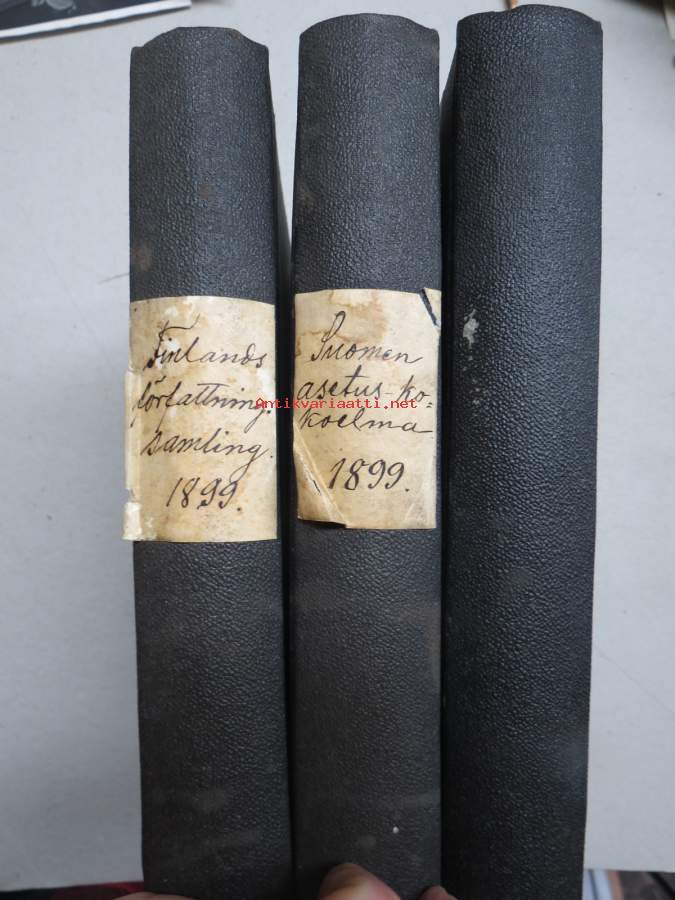 Finlands
författning.
samling.
1899.
Suomen
asetus-ko=
koelma
1899.
Antikvariaatti.net